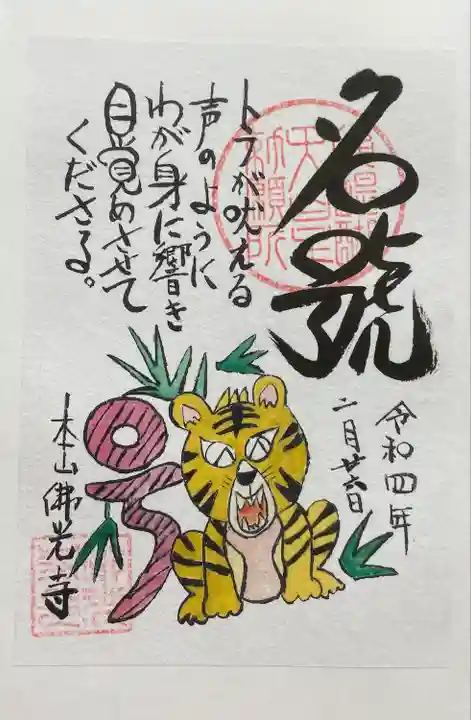 名號
トラが吠える
声のように
わが身に響き
目覚めさせて
くださる。
令和四年
二月廿六日
号
本山佛光寺